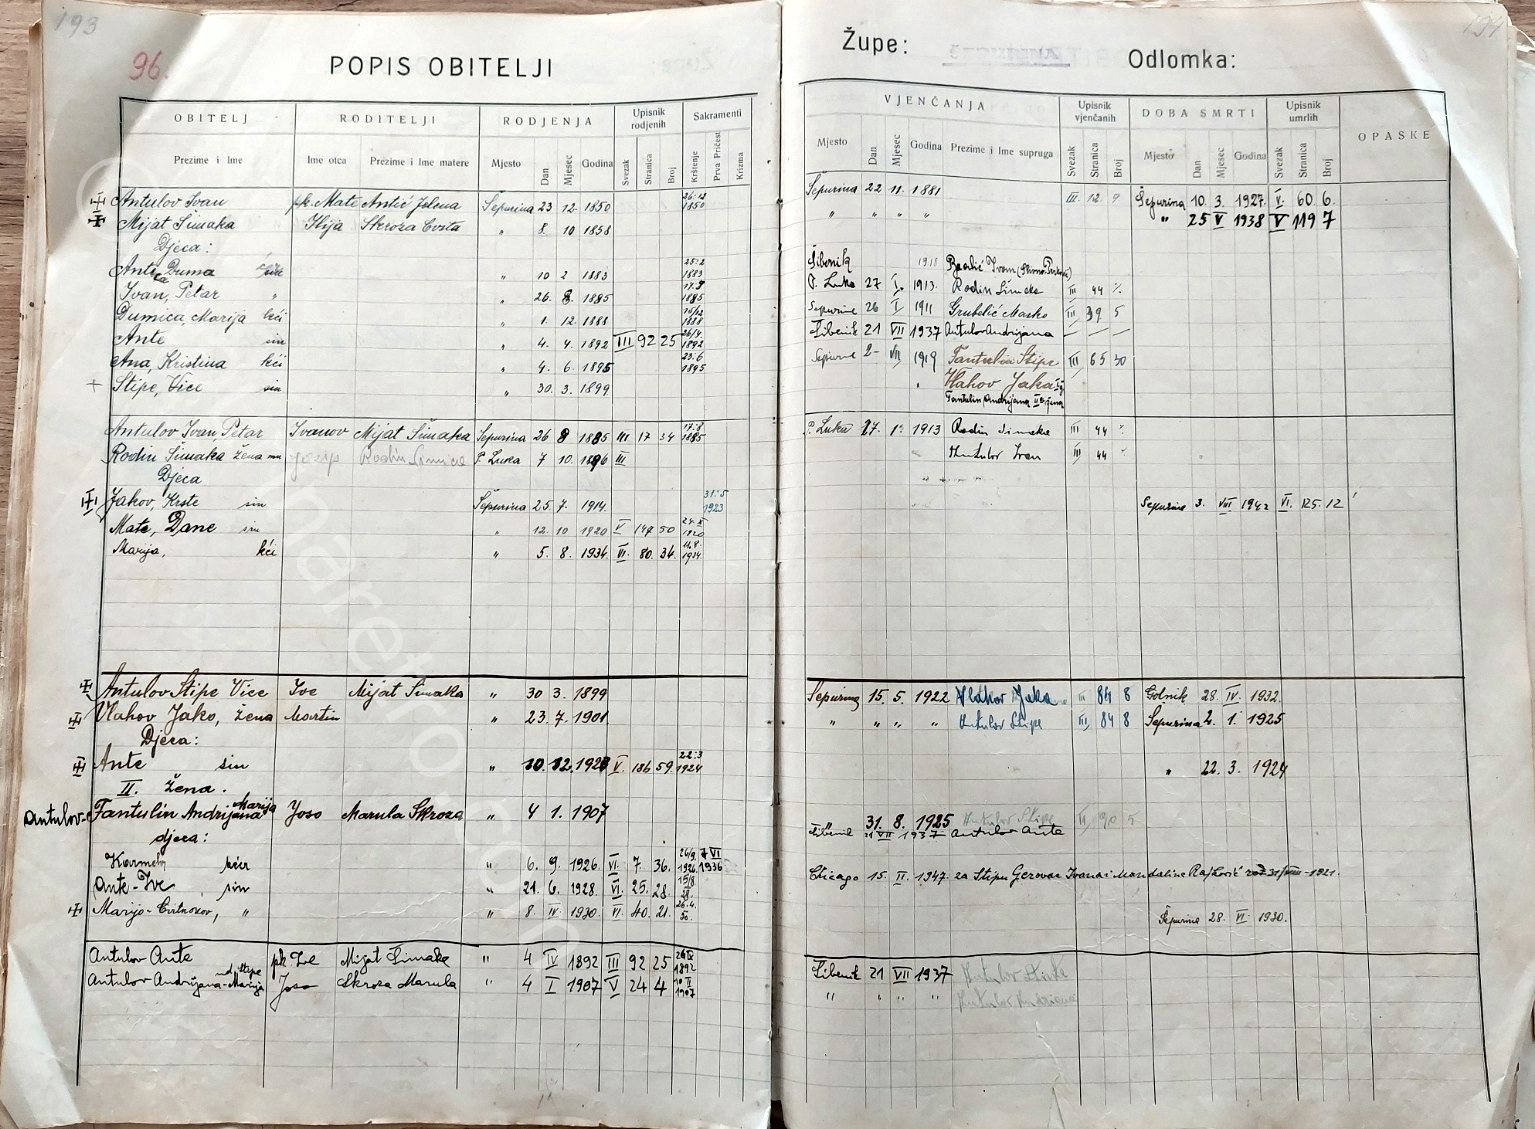 193
96.
POPIS OBITELJI
OBITELJ RODITELJI RODJENJA Upisnik rodjenih Sakramenti
Prezime i Ime Ime otca Prezime i Ime matere Mjesto Dan Mjesec Godina Svezak Stranica Broj Krštenje Prva Pričest Krizma
Antulov Ivan pk. Mate Antić Jelena Šepurina 23 12. 1850 26.12 1850
Mijat Šimaka Ilija Skroza Cvita " 8. 10 1858
Djeca:
Ante, Duma " 10 2 1883 1883
Ivan, Petar " " 26. 8. 1885 17.8 1885
Dumica, Marija kći " 1. 12. 1888 1888
Ante sin " 4. 4. 1892 III 92 25 26/4 1892
Ana, Kristina kći " 4. 6. 1895 23.6 1895
Stipe, Vice sin " 30. 3. 1899
Antulov Ivan Petar Ivanov Mijat Šimaka Šepurina 26 8 1885 III 17 34 17.8 1885
Rodin Šimaka žena mu Rodin P. Luka 7 10. 1896 III
Djeca
Jakov, Krste sin Šepurina 25. 7. 1914. 31.5 1923
Mate, Dane sin " 12. 10 1920 V 147 50 1920
Marija, kći " 5. 8. 1934 VI. 80. 34. 1934
Antulov Stipe Vice Ive Mijat Šimaka " 30 3. 1899
Vlahov Jako, žena Martin " 23. 7. 1901
Djeca:
Ante sin " 10. 12. 1923 V. 186 59. 22.3 1924
II. žena.
Antulov- Tantulin Andrijana Marija Joso Marula Skroza " 4 1. 1907
djeca:
Karmen kćer " 6. 9. 1926. VI. 7 36. 26/9. 1926. 7 VI 1936
Ante-Ive sin " 21. 6. 1928. VI. 25. 28. 15/8 28.
Marijo-Cvitnokov, " " 8 IV 1930. VI. 40. 21. 26.4. 30.
Antulov Ante pk Ive Mijat Šimaka " 4 IV 1892 III 92 25 1892
Antulov Andrijana-Marija ud. Stipe Joso Skroza Marula " 4 I 1907 V 24 4 1907
194
Župe: Odlomka:
VJENČANJA Upisnik vjenčanih DOBA SMRTI Upisnik umrlih OPASKE
Mjesto Dan Mjesec Godina Prezime i Ime supruga Svezak Stranica Broj Mjesto Dan Mjesec Godina Svezak Stranica Broj
Šepurina 22 11. 1881 III. 12. 9 Šepurina 10. 3. 1927. V. 60. 6.
" " " " " 25 V 1938 V 119 7
Šibenik 1918 Ivan
P. Luka 27 I. 1913. Rodin Šimaka III 44
Šepurina 26 I. 1911 Grubelić Marko III 39 5
Šibenik 21 VII 1937 Antulov Andrijana
Šepurina 2 VII 1919 Tantulin Stipe III 65 30
Vlahov Jaka I ž
Tantulin Andrijana II ž. žena
P. Luka 27. 1. 1913 Rodin Šimaka III 44
Antulov Ivan III 44
Šepurina 3. VIII 1942 VI. 125. 12
Šepurina 15. 5. 1922 Vlahov Jaka III 84 8 Golnik 28. IV. 1932.
" " " " Antulov Stipe III, 84 8 Šepurina 2. 1. 1925
" 22. 3. 1924
31. 8. 1925 Antulov Stipe 5
Šibenik 21 VII 1937 Antulov Ante
Chicago 15. II. 1947. za Stipu Gerovac Ivana i Mandaline 1921.
Šepurina 28. VI. 1930.
Šibenik 21 VII 1937 Antulov
" " " " Antulov Andrijana